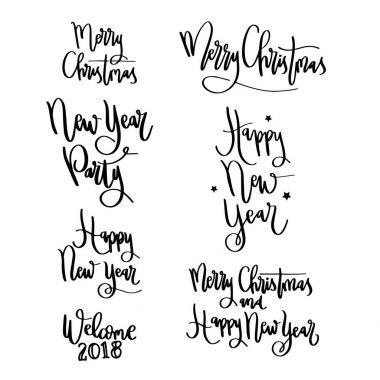 Merry
Christmas
New Year
Party
Happy
New Year
Welcome
2018
Merry Christmas
Happy
New
Year
Merry Christmas
and
Happy New Year